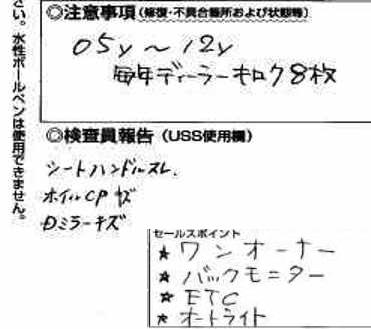 さい。水性ボールペンは使用できません。
◎注意事項(修復・不具合箇所および状態等)
05y〜12y
毎年ディーラーキロク8枚
◎検査員報告(USS使用欄)
シートハンドルスレ.
ホイルCPキズ
Dミラーキズ
セールスポイント
★ワンオーナー
★バックモニター
★ETC
★オートライト